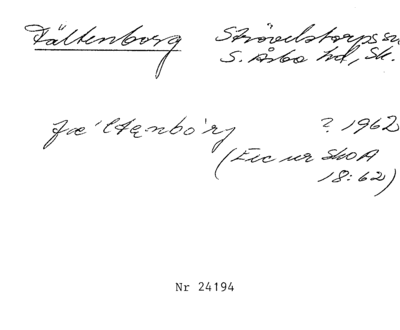 Fältenborg Strövelstorps sn
S. Åsbo hd, Sk.
fæ´ltenbo´rj ? 1962
(Exc ur SkOA
18:62)
Nr 24194